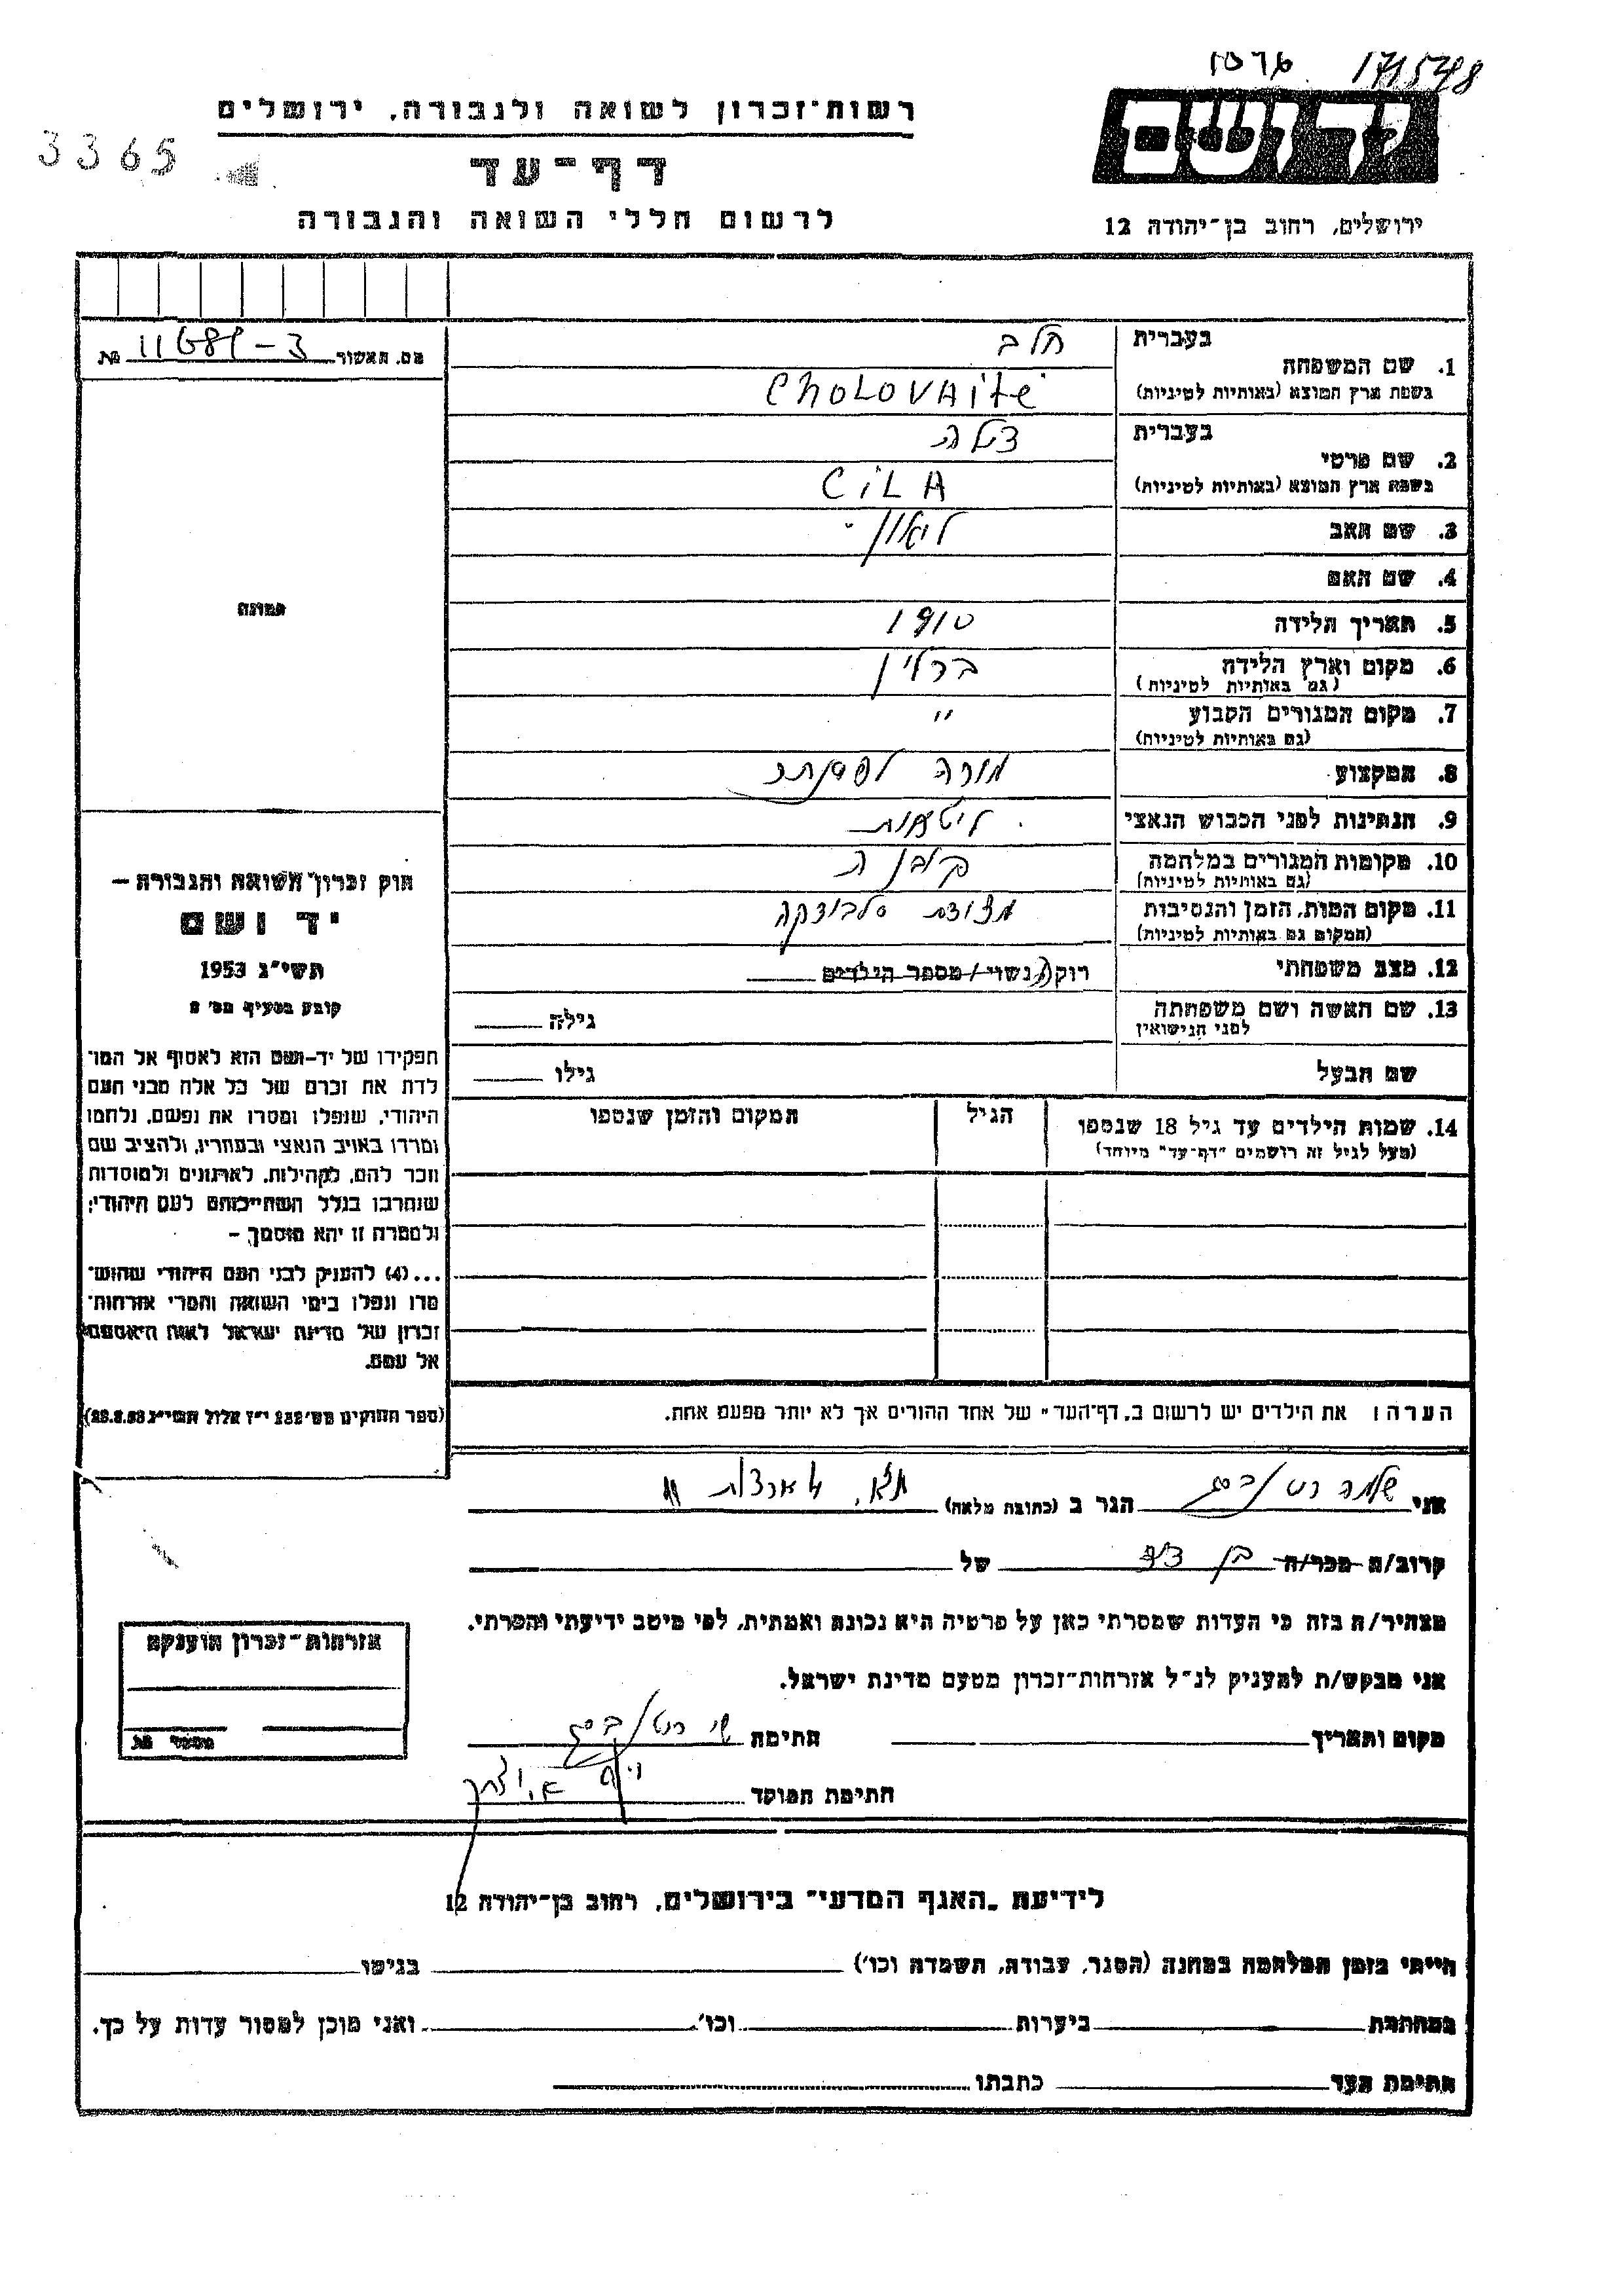 171548
רשות-זכרון לשואה ולגבורה, ירושלים
3365
יד ושם
דף-עד
לרשום חללי השואה והגבורה
ירושלים, רחוב בן-יהודה 12
מס. האשור 11681-3 מת
1. שם המשפחה בעברית חלב
בשפת ארץ המוצא (באותיות לטיניות) CHOLOVAitė
2. שם פרטי בעברית צילה
בשפת ארץ המוצא (באותיות לטיניות) CiLA
3. שם האב ליאון
4. שם האם
5. תאריך הלידה 1910
6. מקום וארץ הלידה ברלין
(גם באותיות לטיניות)
7. מקום המגורים הקבוע "
(גם באותיות לטיניות)
8. המקצוע מורה לפסנתר
9. הנתינות לפני הכבוש הנאצי ליטאית
10. מקומות המגורים במלחמה
(גם באותיות לטיניות)
11. מקום המות, הזמן והנסיבות סלבודקה
(המקום גם באותיות לטיניות)
12. מצב משפחתי רוק/ה נשוי/מספר הילדים
13. שם האשה ושם משפחתה גילה
לפני הנישואין
שם הבעל גילו
14. שמות הילדים עד גיל 18 שנספו הגיל המקום והזמן שנספו
(מעל לגיל זה רושמים "דף-עד" מיוחד)
הערה: את הילדים יש לרשום ב"דף-העד" של אחד ההורים אך לא יותר מפעם אחת.
תמונה
חוק זכרון השואה והגבורה –
יד ושם
תשי"ג 1953
קובע בסעיף מס' 2
תפקידו של יד-ושם הוא לאסוף אל המו-
לדת את זכרם של כל אלה מבני העם
היהודי, שנפלו ומסרו את נפשם, נלחמו
ומרדו באויב הנאצי ובעוזריו, ולהציב שם
וזכר להם, לקהילות, לארגונים ולמוסדות
שנחרבו בגלל השתייכותם לעם היהודי;
ולמטרה זו יהא מוסמך –
...(4) להעניק לבני העם היהודי שהוש-
מדו ונפלו בימי השואה והמרי אזרחות-
זכרון של מדינת ישראל לאות היאספם
אל עמם.
(ספר החוקים מס' 132 י"ז אלול תשי"ג 28.8.53)
אני שלמה הגר ב (כתובת מלאה) ת"א,
קרוב/ה מכר/ה בן דוד של
מצהיר/ה בזה כי העדות שמסרתי כאן על פרטיה היא נכונה ואמתית, לפי מיטב ידיעתי והכרתי.
אני מבקש/ת להעניק לנ"ל אזרחות-זכרון מטעם מדינת ישראל.
מקום ותאריך חתימה
חתימת הפוקד
אזרחות-זכרון הוענקה
מספר מת
לידיעת "האגף המדעי" בירושלים, רחוב בן-יהודה 12
הייתי בזמן המלחמה במחנה (הסגר, עבודה, השמדה וכו') בגיטו
במחתרת ביערות וכו' ואני מוכן למסור עדות על כך.
חתימת העד כתבתו